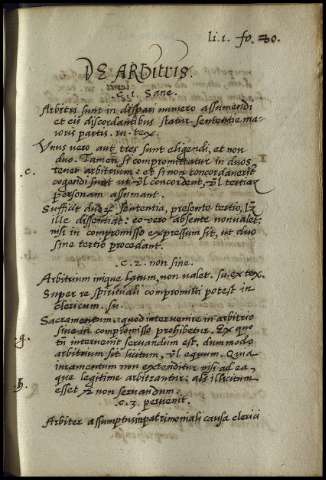 li. 1. fo. 20.
DE ARBITRIS.
c. 1. Sane.
Arbitri sunt in dispari numero assumendi
et eis discordantibus statur sententiae ma
ioris partis. in tex.
Vnus vero aut tres sunt eligendi, et non
duo. Tamen si compromittatur in duos
tenet arbitrium: et si non concordaverint
cogendi sunt ut vel concordent, vel tertiam
c.
personam assumant.
Sufficit sententia, presente tertio, licet
ille dissentiat: eo vero absente non valet,
nisi in compromisso expressum sit, ut duo
sine tertio procedant.
c. 2. non sine.
Arbitrium inique latum, non valet. su. ex tex.
Super re spirituali compromitti potest in
clericum. su.
Sacramentum, quod intervenire in arbitrio
sive in compromisso prohibetur. Ex quo
g.
tamen intervenit servandum est, dummodo
arbitrium sit licitum, vel equum. Quia
iuramentum non extenditur nisi ad ea,
que legitime arbitrantur, alias illicitum
h.
esset et non servandum.
c. 3. pervenit.
Arbiter assumptus patrimoniali causa clerici